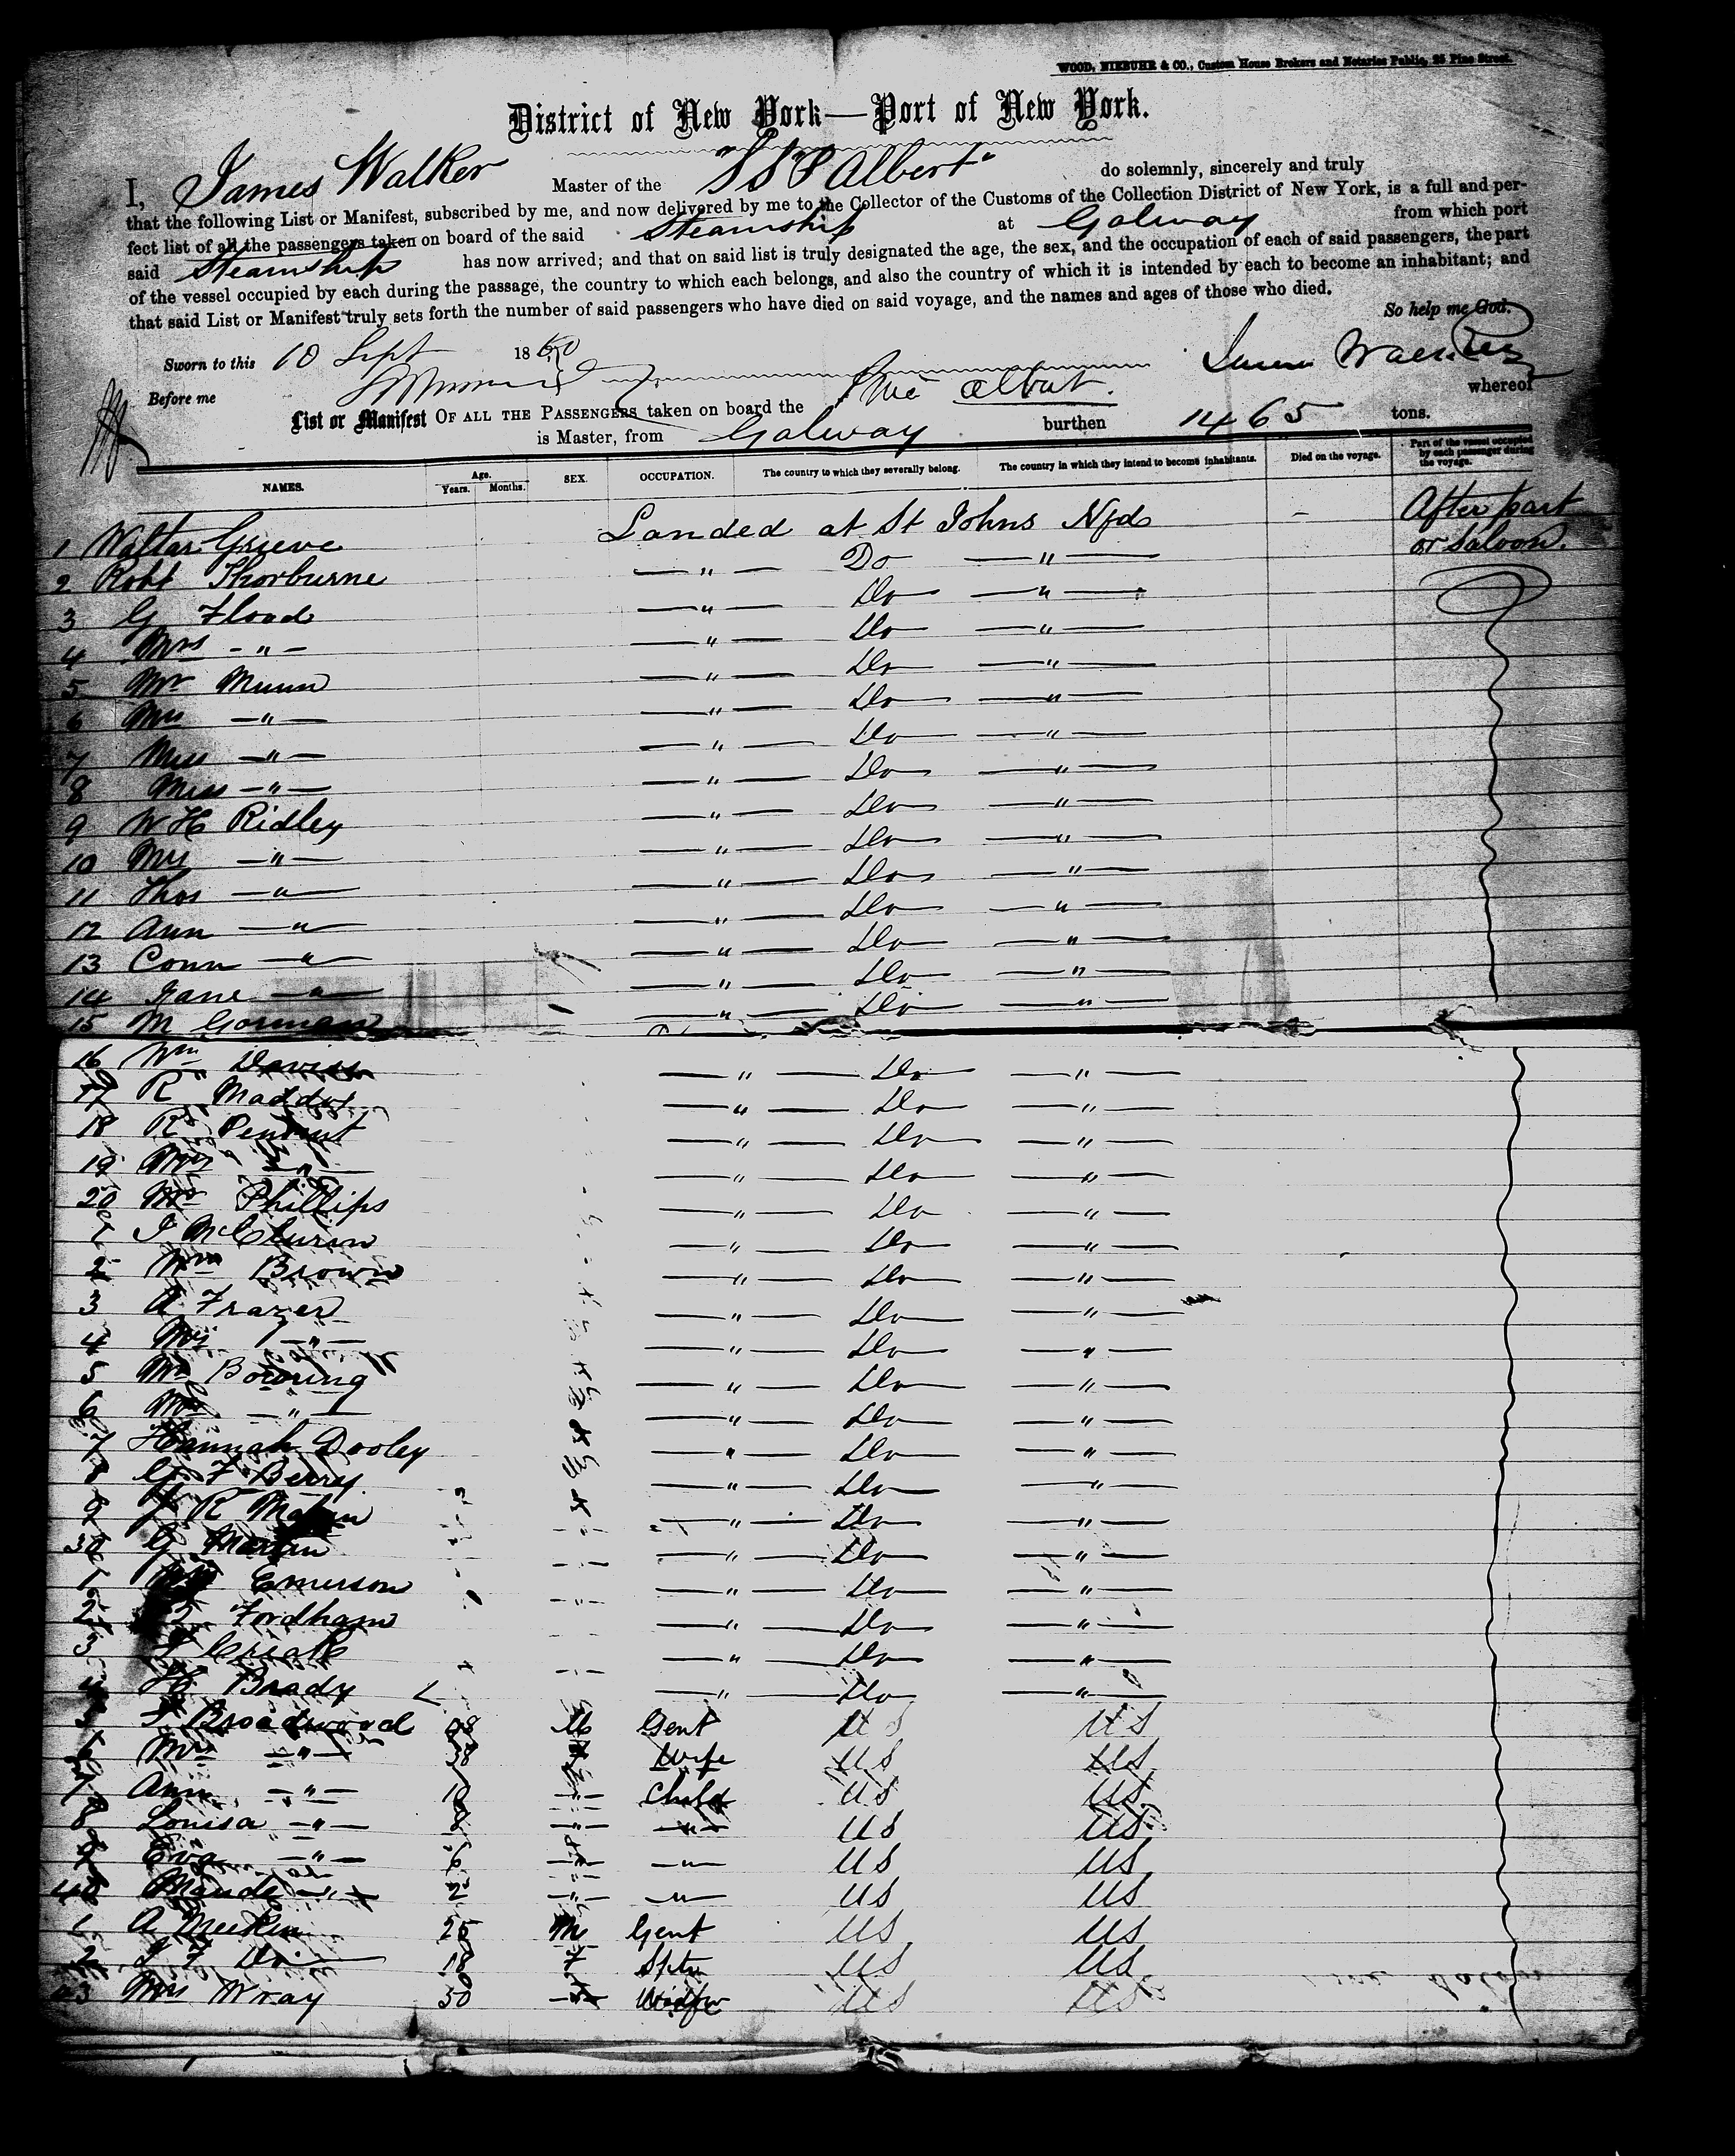 WOOD, NIEBUHR & CO., Custom House Brokers and Notaries Public, 25 Pine Street.
District of New York—Port of New York.
I, James Walker Master of the "SS P Albert" do solemnly, sincerely and truly
that the following List or Manifest, subscribed by me, and now delivered by me to the Collector of the Customs of the Collection District of New York, is a full and per-
fect list of all the passengers taken on board of the said Steamship at Galway from which port
said Steamship has now arrived; and that on said list is truly designated the age, the sex, and the occupation of each of said passengers, the part
of the vessel occupied by each during the passage, the country to which each belongs, and also the country of which it is intended by each to become an inhabitant; and
that said List or Manifest truly sets forth the number of said passengers who have died on said voyage, and the names and ages of those who died.
So help me God.
Sworn to this 10 Sept 1860 James Walker
Before me whereof
List or Manifest OF ALL THE PASSENGERS taken on board the Albert
is Master, from Galway burthen 1465 tons.
NAMES. Age. Years. Months. SEX. OCCUPATION. The country to which they severally belong. The country in which they intend to become inhabitants. Died on the voyage. Part of the vessel occupied by each passenger during the voyage.
1 Walter Grieve Landed at St Johns Nfd – After part
or Saloon.
2 Robt Thorburne — " — Do — " —
3 G Flood — " — Do — " —
4 Mrs – " – — " — Do — " —
5 Mr Munn — " — Do — " —
6 Mrs — " — — " — Do — " —
7 Miss — " — — " — Do — " —
8 Miss — " — — " — Do — " —
9 W H Ridley — " — Do — " —
10 Mrs — " — — " — Do — " —
11 Thos — " — — " — Do — " —
12 Ann — " — — " — Do — " —
13 Conn — " — — " — Do — " —
14 Jane — " — — " — Do — " —
15 M Gorman — " — Do — " —
16 Wm Daviss — " — Do — " —
17 R Maddox — " — Do — " —
18 Rd — " — Do — " —
19 Mrs — " — — " — Do — " —
20 Mr Phillips — " — Do — " —
1 J — " — Do — " —
2 Wm Brown — " — Do — " —
3 A Frazer — " — Do — " —
4 Mrs — " — — " — Do — " —
5 Mr Bowring — " — Do — " —
6 Mrs — " — — " — Do — " —
7 Hannah Dooley — " — Do — " —
8 G F Berry — " — Do — " —
9 R — " — Do — " —
30 G Martin — " — Do — " —
1 Emerson — " — Do — " —
2 Fordham — " — Do — " —
3 — " — Do — " —
4 H Brady — " — Do — " —
5 J Broadwood M Gent US US
6 Mrs — " — 38 Wife US US
7 Ann — " — 10 — " — Child US US
8 Louisa — " — 8 — " — — " — US US
9 Eva — " — 6 — " — — " — US US
40 Maude — " — 2 — " — — " — US US
1 A Meekin 25 M Gent US US
2 J F Do 18 F Sptr US US
43 Mrs Wray 50 — " — Widow US US